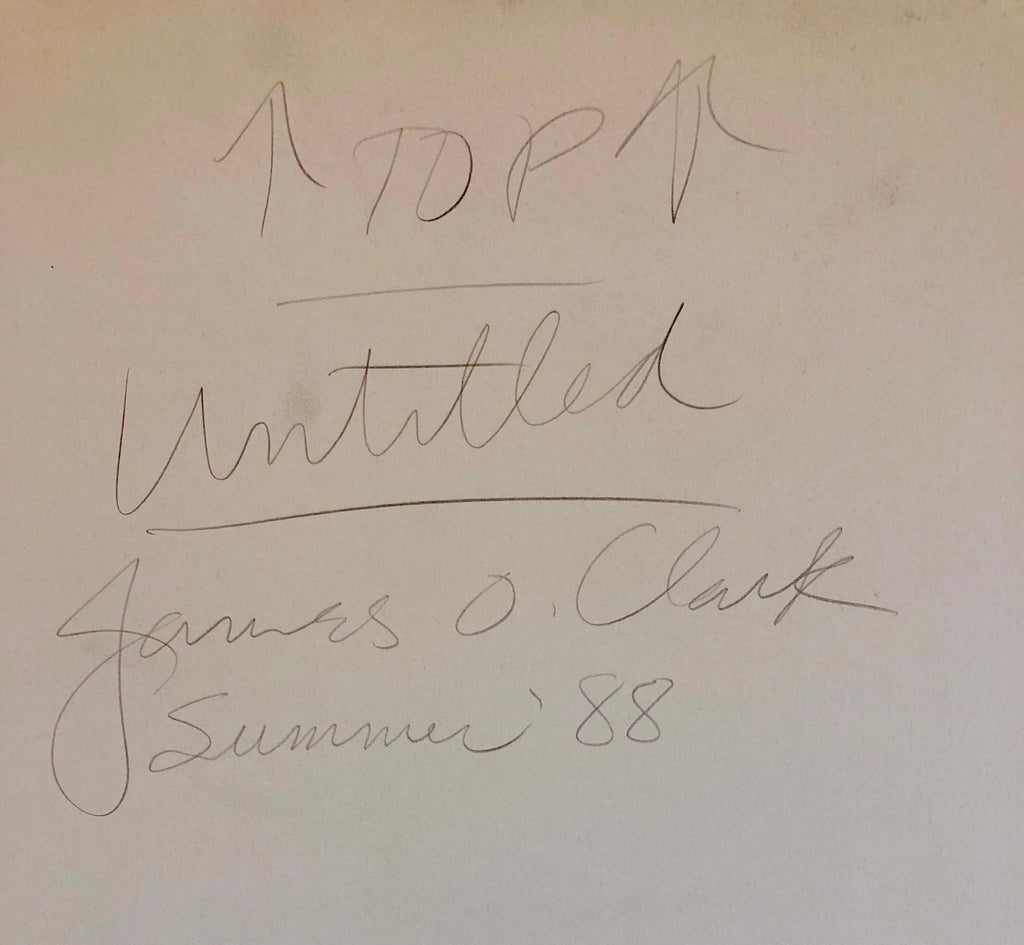 ↑ TOP ↑
Untitled
James O. Clark
Summer '88